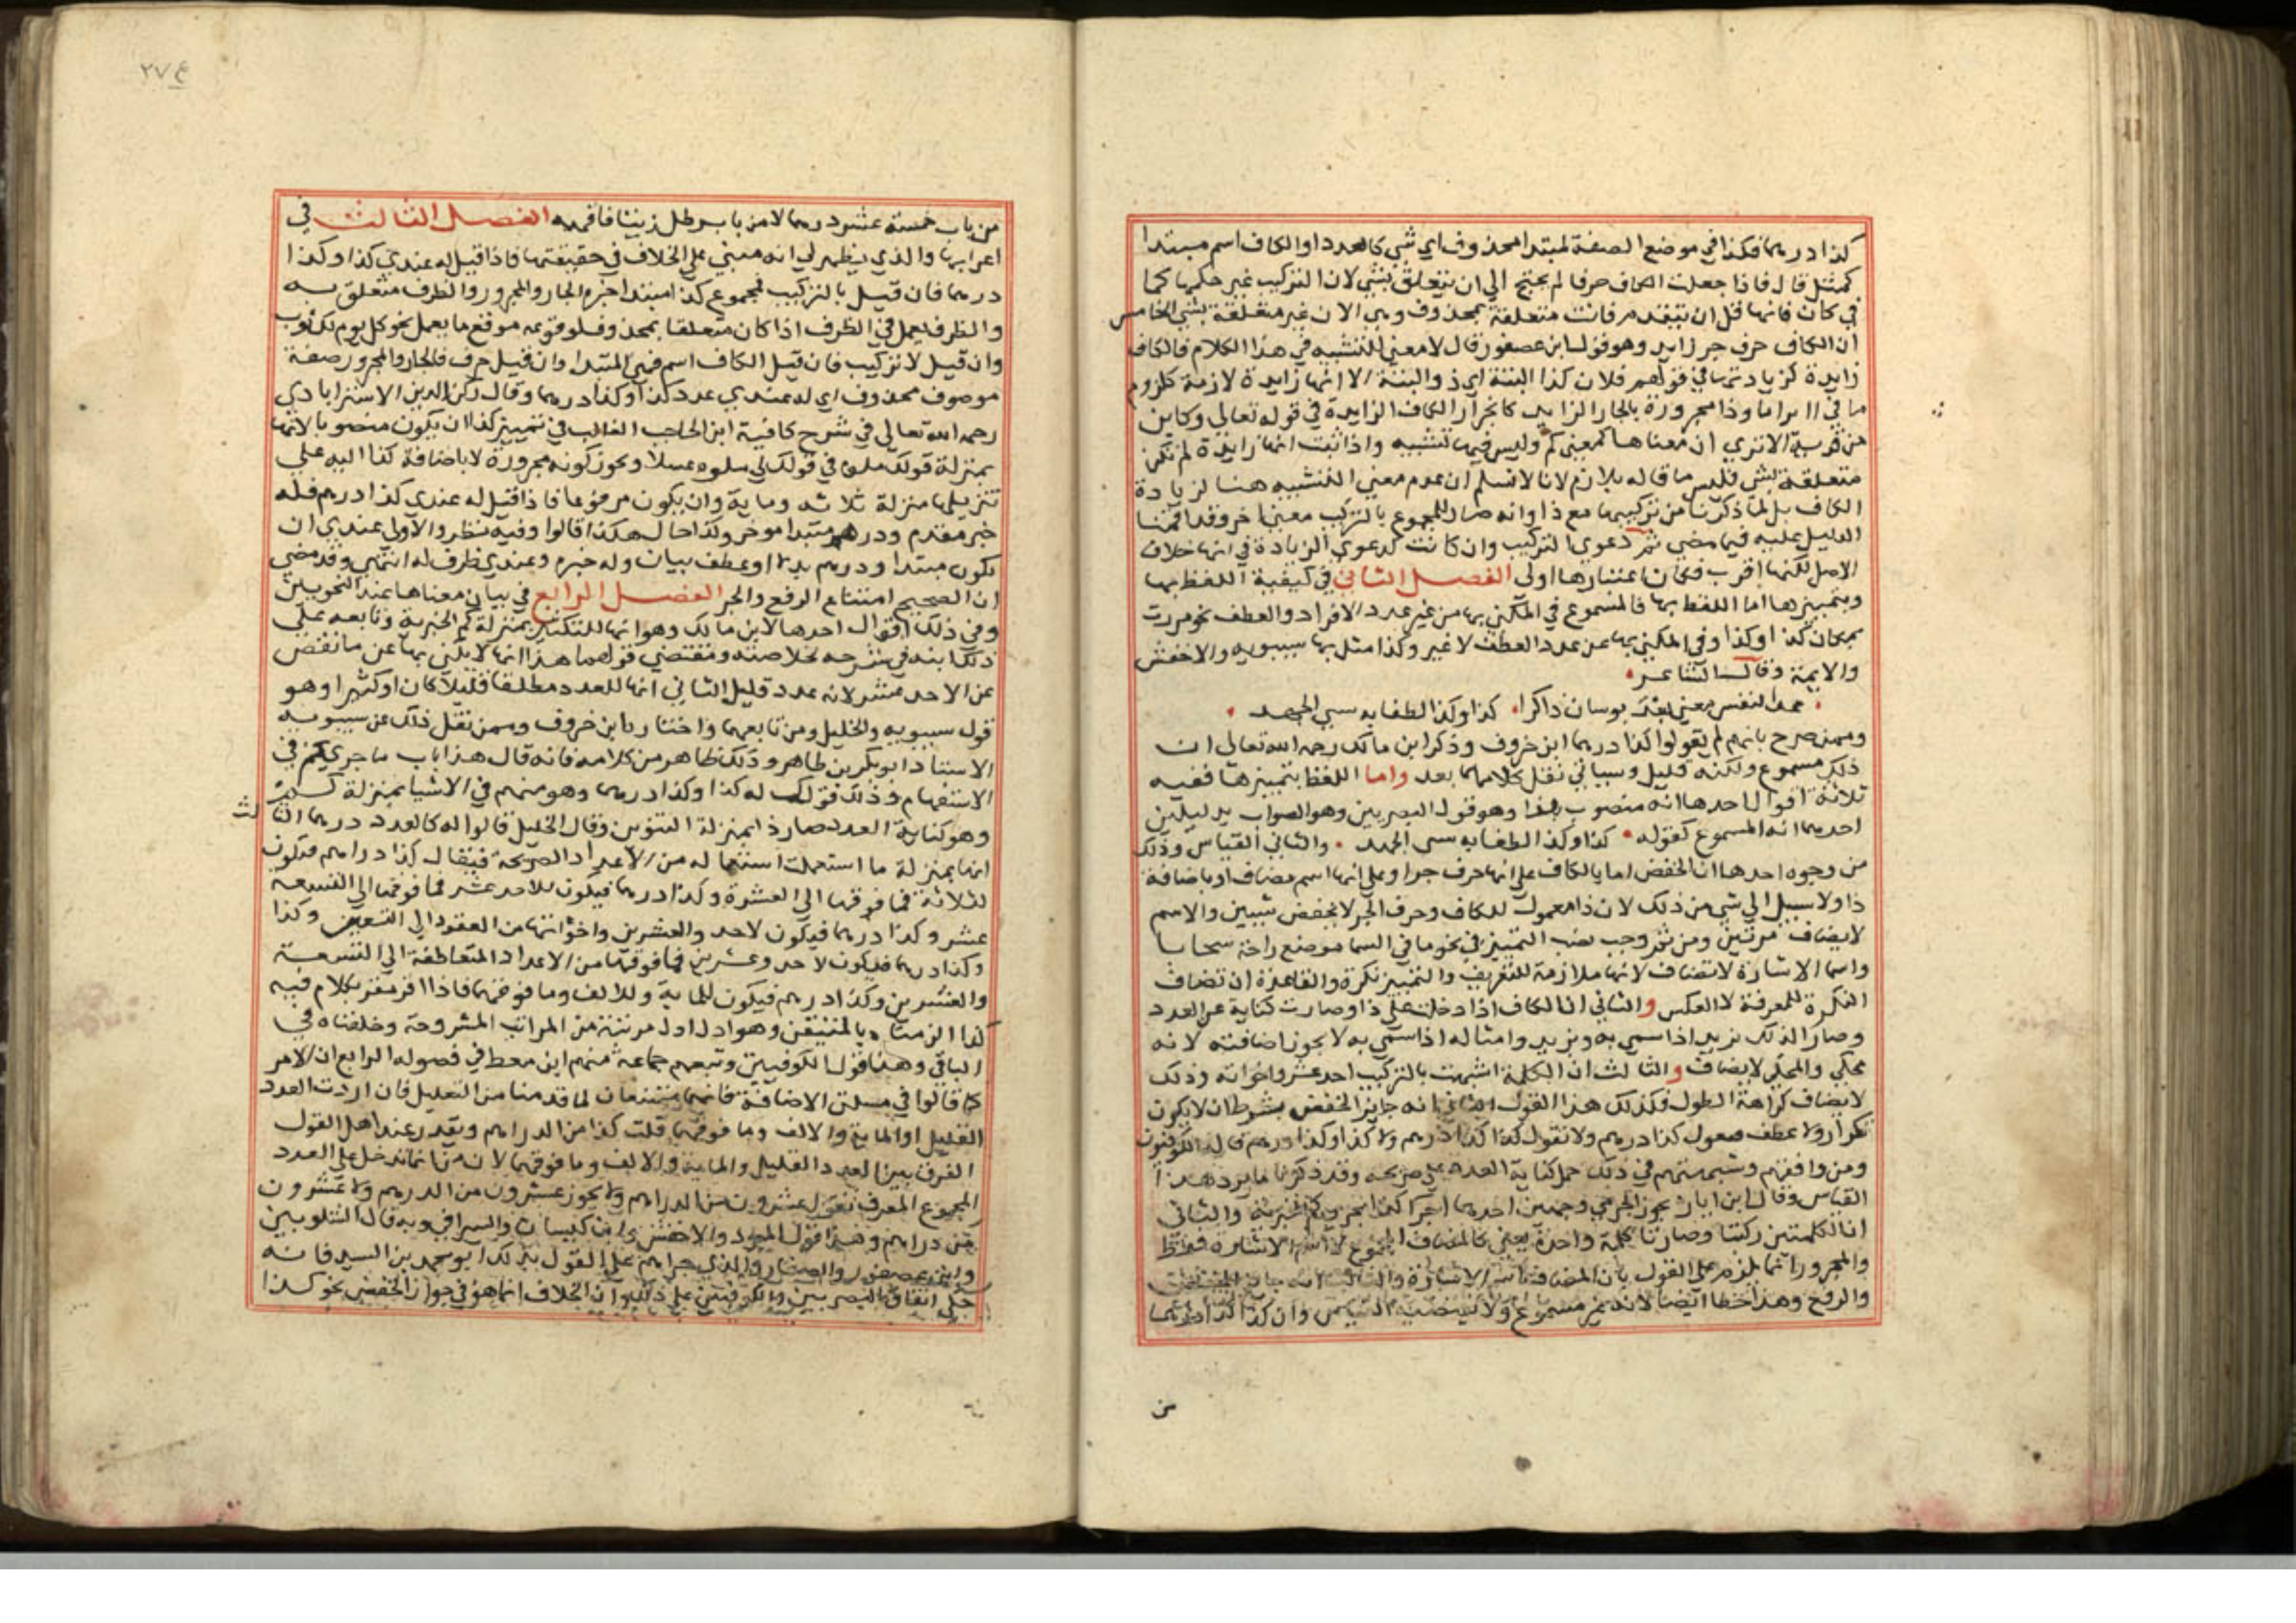 كذا درهما فكذا في موضع الصفة لمبتدا محذوف اي شي كالعدد او الكاف اسم مبتدا
كمثل قال فاذا جعلت الكاف حرفا لم يحتج الي ان يتعلق بشي لان التركيب غير حكمها كما
في كان فانها قبل ان تتقدم كانت متعلقة بمحذوف وهي الان غير متعلقة بشي الخامس
ان الكاف حرف جر زايد وهو قول ابن عصفور قال لا معني للتشبيه في هذا الكلام فالكاف
زايدة كزيادتها في قولهم فلان كذا البتة اي ذ والبتة الا انها زايدة لازمة كلزوم
ما في اا يرا ما وذا مجرورة بالجار الزايد كانجرار الكاف الزايدة في قوله تعالي وكاين
من قرية الا تري ان معناها كمعني كم وليس فيها تشبيه واذا ثبت انها زايدة لم تكن
متعلقة بشي فليس ما قاله بلازم لانا لا نسلم ان عدم معني التشبيه هنا لزيادة
الكاف بل لما ذكرنا من تركيبها مع ذا وانه صار للمجموع بالتركيب معني اخر وقد اقمنا
الدليل عليه فيما مضي ثم دعوي التركيب وان كانت كدعوي الزيادة في انها خلاف
الاصل لكنها اقرب فكان اعتبارها اولي الفصل الثاني في كيفية اللفظ بها
وبتمييزها اما اللفظ بها فالمسموع في المكني بها من غير عدد الافراد والعطف نحو مررت
بمكان كذا وكذا وفي المكني بها عن عدد العطف لا غير وكذا مثل بها سيبويه والاخفش
والايمة وقال الشاعر
عد النفس نعمي بعد بوسان ذاكرا كذا وكذا لطفا به نسي الجهد
وممن صرح بانهم لم يقولوا كذا درهما ابن خروف وذكر ابن مالك رحمه الله تعالي ان
ذلك مسموع ولكنه قليل وسياتي نقل كلامهما بعد واما اللفظ بتمييزها ففيه
ثلاثة اقوال احدها انه منصوب ابدا وهو قول البصريين وهو الصواب بدليلين
احدهما انه المسموع كقوله كذا وكذا لطفا به نسي الجهد والثاني القياس وذلك
من وجوه احدها ان الخفض اما بالكاف علي انها حرف جر او علي انها اسم مضاف او باضافة
ذا ولا سبيل الي شي من ذلك لان ذا معمول للكاف وحرف الجر لا يخفض شيين والاسم
لا يضاف مرتين ومن ثم وجب نصب التمييز في نحو ما في السما موضع راحة سحابا
واسما الاشارة لا تضاف لانها ملازمة للتعريف والتمييز نكرة والقاعدة ان تضاف
النكرة للمعرفة لا العكس والثاني ان الكاف اذا دخلت علي ذا وصارت كناية عن العدد
وصار الذلك بزيد اذا سمي به وبزيد وامثاله اذا سمي به لا يجوز اضافته لانه
محكي والمحكي لا يضاف والثالث ان الكلمة اشبهت بالتركيب احد عشر واخواته وذلك
لا يضاف كراهة الطول فكذلك هذا القول الثاني انه جايز الخفض بشرط ان لا يكون
تكرار ولا عطف فيقول كذا درهم ولا تقول كذا كذا درهم ولا كذا وكذا درهم قاله الكوفيون
ومن وافقهم وشبهتهم في ذلك حمل كناية العدد علي صريحه وقد ذكرنا ما يرد هذا
القياس وقال ابن اياز يجوز الجر من وجهين احدهما اجرا كذا مجري كم الخبرية والثاني
ان الكلمتين ركبتا وصارتا كلمة واحدة يعني كالمضاف المجموع لا اسم الاشارة فقط
والمجرور انما يلزم علي القول بان المضاف اسم الاشارة والثالث انه جايز الخفض
والرفع وهذا خطا ايضا لانه غير مسموع ولا يقتضيه القياس وان كذا كذا درهما
من
٢٧٤
من باب خمسة عشر درهما لا من باب رطل زيتا فافهمه الفصل الثالث في
اعرابها والذي يظهر لي انه مبني علي الخلاف في حقيقتها فاذا قيل له عندي كذا وكذا
درهما فان قيل بالتركيب فمجموع كذا مبتدا خبره الجار والمجرور والظرف متعلق به
والظرف يعمل في الظرف اذا كان متعلقا بمحذوف لوقوعه موقع ما يعمل نحو كل يوم لك ثوب
وان قيل لا تركيب فان قيل الكاف اسم فهي المبتدا وان قيل حرف فالجار والمجرور صفة
موصوف محذوف اي له عندي عدد كذا وكذا درهما وقال ركن الدين الاستراباذي
رحمه الله تعالي في شرح كافية ابن الحاجب الغالب في تمييز كذا ان يكون منصوبا لانها
بمنزلة قولك ملوه في قولك لي ملوه عسلا ويجوز كونه مجرورة لا باضافة كذا اليه علي
تنزيلها منزلة ثلاثه وماية وان يكون مرفوعا فاذا قيل له عندي كذا درهم فله
خبر مقدم ودرهم مبتدا موخر وكذا حال هكذا قالوا وفيه نظر والاولي عندي ان
يكون مبتدا ودرهم بدلا او عطف بيان وله خبره وعندي ظرف له انتهي وقد مضي
ان الصحيح امتناع الرفع والجر الفصل الرابع في بيان معناها عند النحويين
وفي ذلك اقوال احدها لابن مالك وهو انها للتكثير بمنزلة كم الخبرية وتابعه علي
ذلك ابنه في شرحه لخلاصته ومقتضي قولهما هذا انها لا يكني بها عن ما نقص
عن الاحد عشر لانه عدد قليل الثاني انها للعدد مطلقا قليلا كان او كثيرا وهو
قول سيبويه والخليل ومن تابعهما واختاره ابن خروف وممن نقل ذلك عن سيبويه
الاستاذ ابو بكر بن طاهر وذلك ظاهر من كلامه فانه قال هذا باب ما جري كم في
الاستفهام وذلك قولك له كذا وكذا درهما وهو مبهم في الاشيا بمنزلة كم
وهو كناية العدد صار ذا بمنزلة التنوين وقال الخليل قالوا له كالعدد درهما الثالث
انها بمنزلة ما استعملت استعماله من الاعداد الصريحة فيقال كذا دراهم فيكون
لثلاثة فما فوقها الي العشرة وكذا درهما فيكون للاحد عشر فما فوقها الي التسعة
عشر وكذا درهما فيكون لاحد والعشرين واخواتها من العقود الي التسعين وكذا
وكذا درهما فيكون لاحد وعشرين فما فوقها من الاعداد المتعاطفة الي التسعة
والعشرين وكذا درهم فيكون للماية وللالف وما فوقهما فاذا اقر مقر بكلام فيه
كذا الزمناه بالمتيقن وهو اول اول مرتبة من المراتب المشروحة وحلفناه في
الباقي وهذا قول الكوفيين وتبعهم جماعة منهم ابن معط في فصوله الرابع ان الامر
كما قالوا في مسلتي الاضافة فانهما ممتنعان لما قدمنا من التعليل فان اردت العدد
القليل او الماية والالف وما فوقهما قلت كذا من الدراهم ويتعذر عند اهل القول
الفرق بين العدد القليل والماية والالف وما فوقهما لانه انما تدخل علي العدد
المجموع المعرف تقول عشرون من الدراهم ولا يجوز عشرون من الدرهم ولا عشرون
من دراهم وهذا قول المبرد والاخفش وابن كيسان والسيرافي وبه قال الشلوبين
وابن عصفور والصفار والذي جراهم علي القول بذلك ابو محمد بن السيد فانه
حكي اتفاق البصريين والكوفيين علي ذلك وان الخلاف انما هو في جواز الخفض نحو كذا